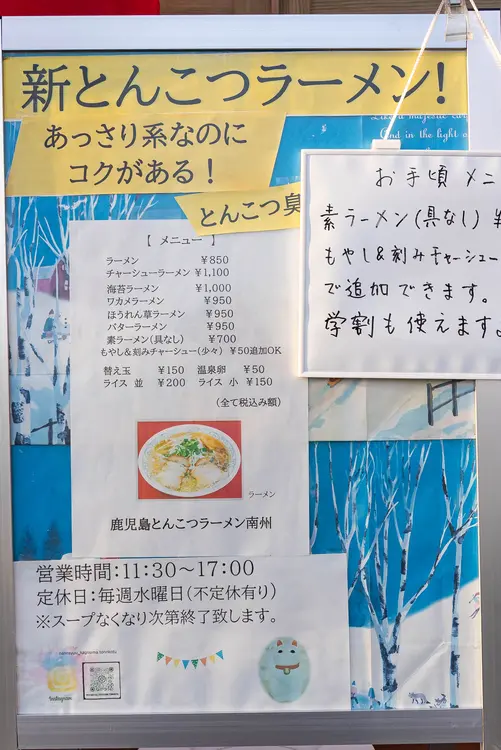 新とんこつラーメン!
あっさり系なのに
コクがある!
とんこつ臭
Like a majestic
And in the light
お手頃 メニ
素ラーメン(具なし)
もやし&刻みチャーシュー
で追加できます。
学割も使えます。
【 メニュー 】
ラーメン ¥850
チャーシューラーメン ¥1,100
海苔ラーメン ¥1,000
ワカメラーメン ¥950
ほうれん草ラーメン ¥950
バターラーメン ¥950
素ラーメン(具なし) ¥700
もやし&刻みチャーシュー(少々) ¥50追加OK
替え玉 ¥150 温泉卵 ¥50
ライス 並 ¥200 ライス 小 ¥150
(全て税込み額)
ラーメン
鹿児島とんこつラーメン南州
営業時間:11:30~17:00
定休日:毎週水曜日(不定休有り)
※スープなくなり次第終了致します。
Instagram